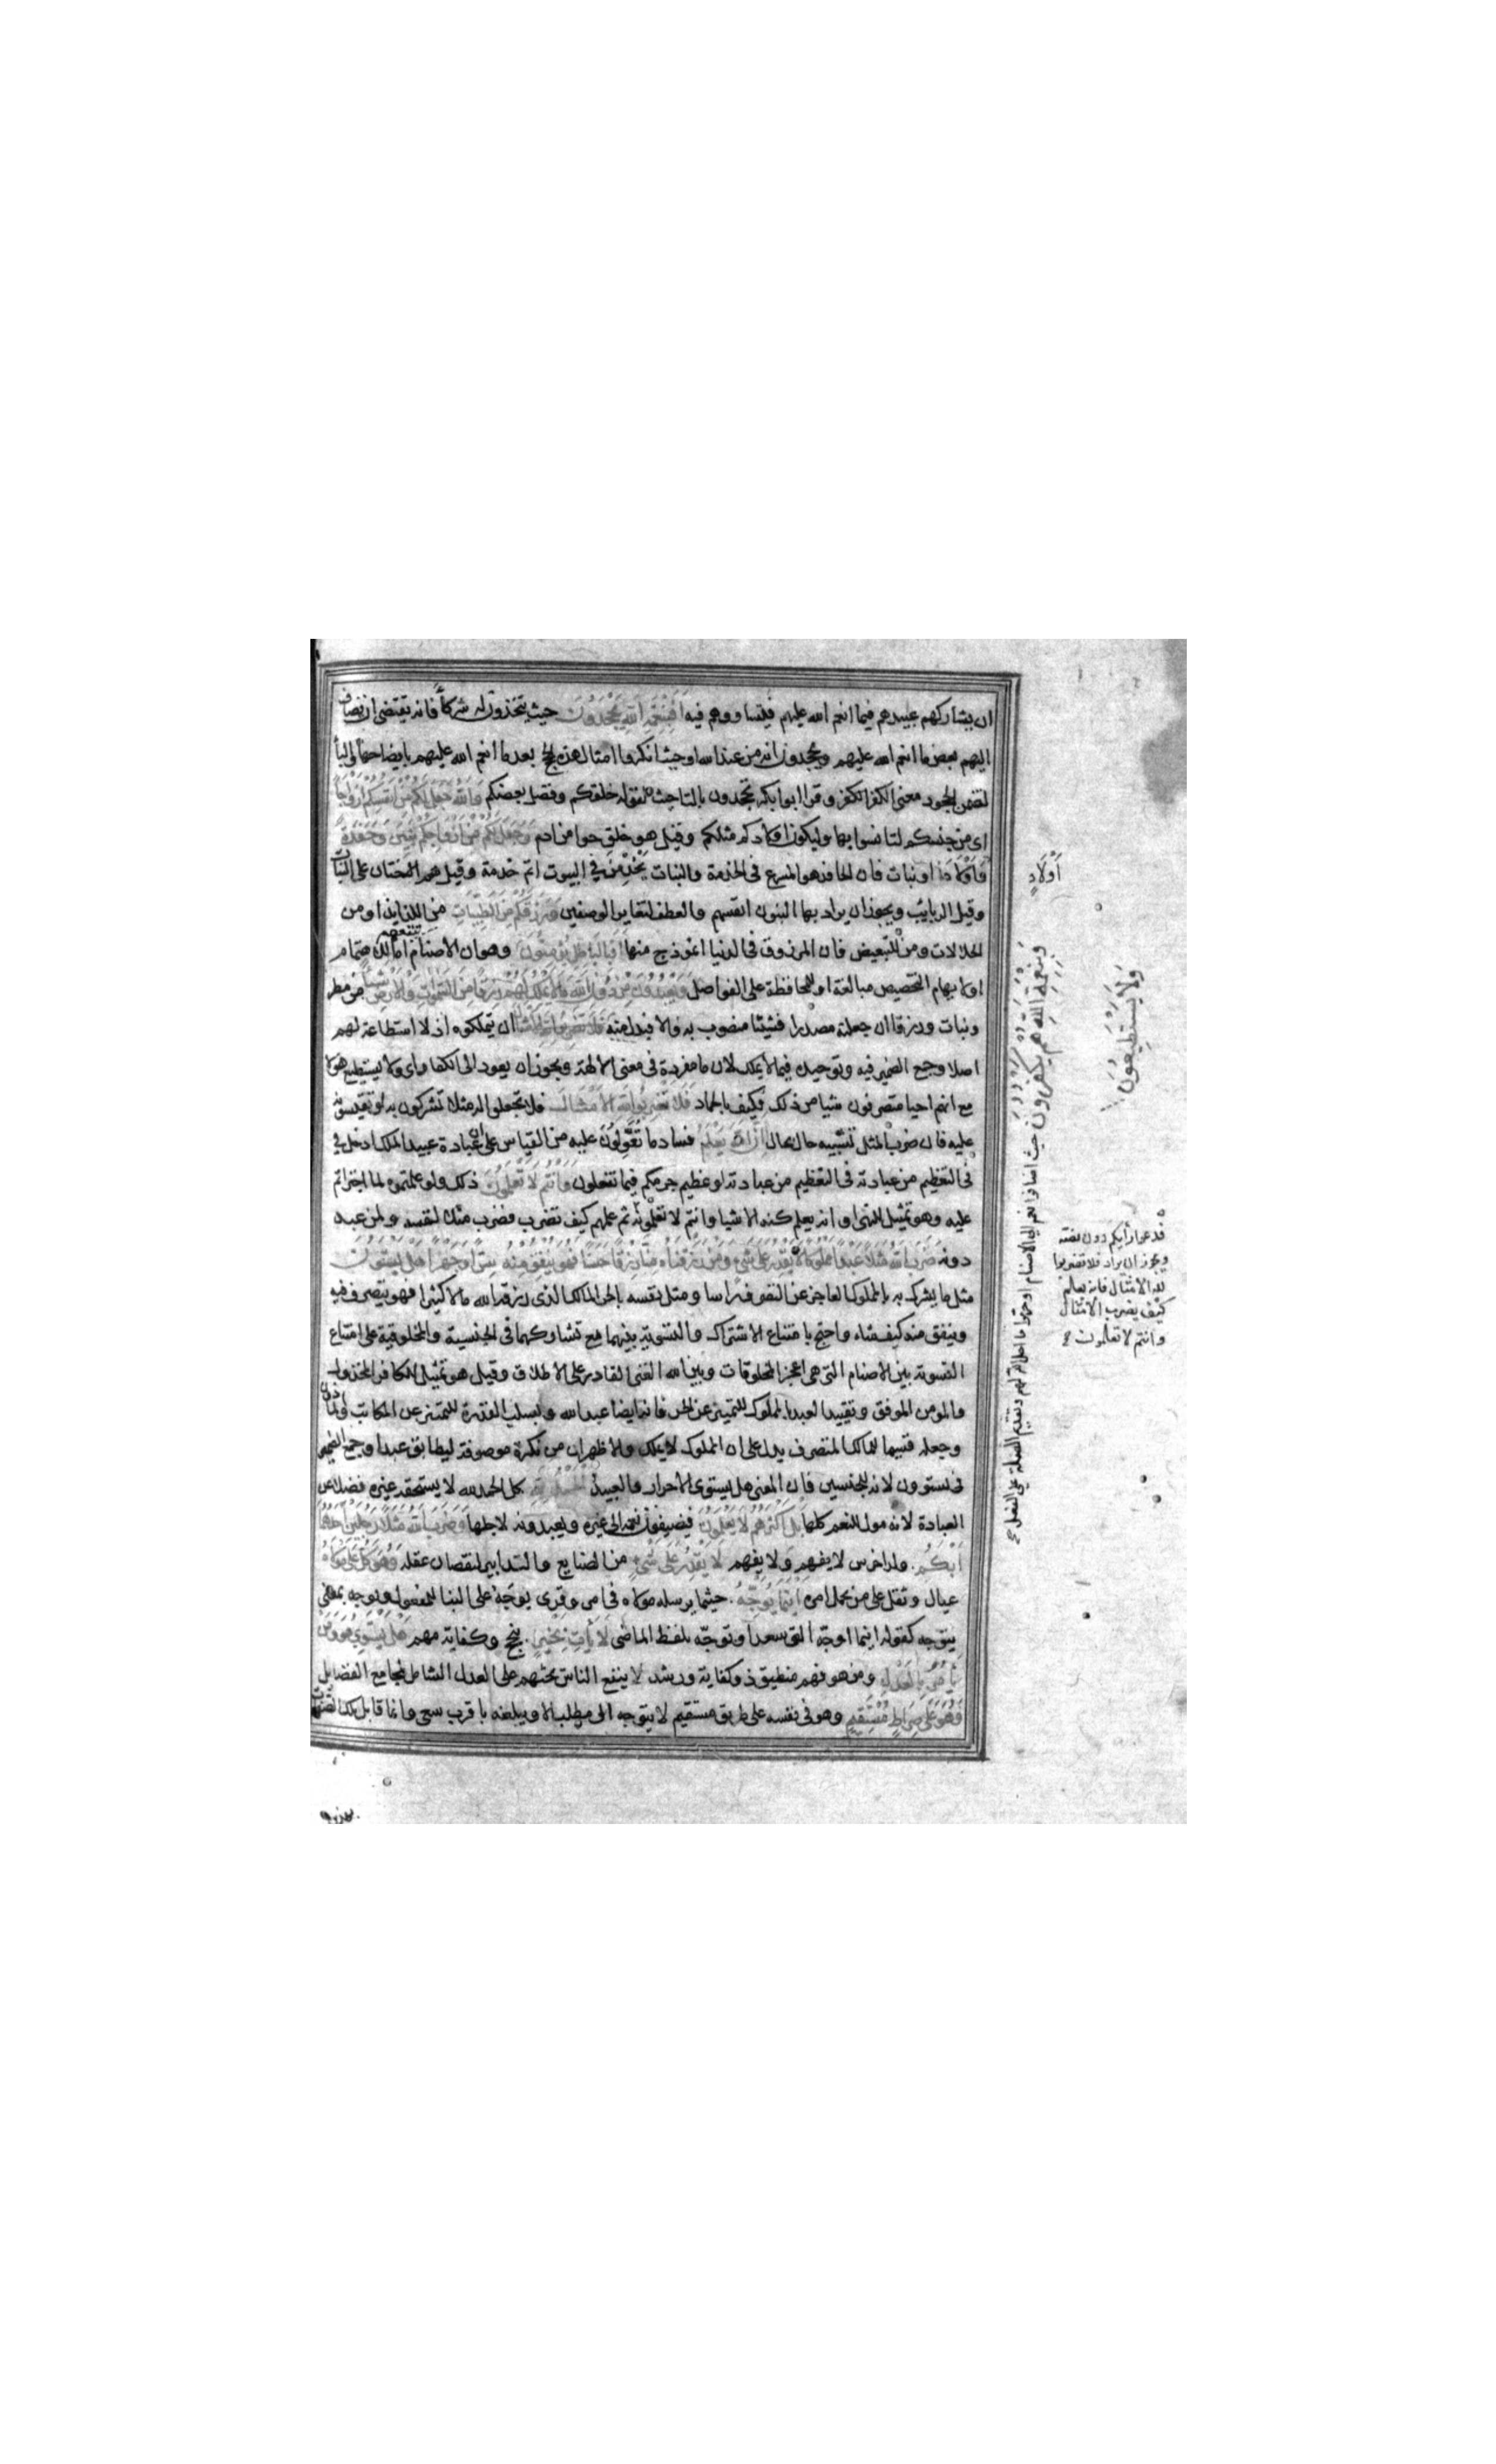 ان يشاركهم عبيدهم فيما انعم الله عليهم فيتساووهم فيه افبنعمة الله يجحدون حيث يتخذون له شركاء فانه يقتضى ان يضاف
اليهم بعض ما انعم الله عليهم ويجحدون انه من عند الله او حيث انكروا امثال هذه الحجج بعد ما انعم الله عليهم بايضاحها والباء
لتضمن الجحود معنى الكفر وقرا ابو بكر تجحدون بالتا لقوله خلقكم وفضل بعضكم والله جعل لكم من انفسكم ازواجا
اى من جنسكم لتانسوا بها وليكون اولادكم مثلكم وقيل هو خلق حوا من ادم وجعل لكم من ازواجكم بنين وحفدة
او بنات فان الحافد هو المسرع فى الخدمة والبنات يخدمن فى البيوت اتم خدمة وقيل هم الاختان على البنات
وقيل الربايب ويجوز ان يراد بها البنون انفسهم والعطف لتغاير الوصفين ورزقكم من الطيبات من اللذايذ او من
الحلالات ومن للتبعيض فان المرزوق فى الدنيا انموذج منها افبالباطل يؤمنون وهو ان الاصنام تنفعهم
او لايهام التخصيص مبالغة او للمحافظة على الفواصل ويعبدون من دون الله ما لا يملك لهم رزقا من السموات والارض شيئا من مطر
ونبات ورزقا ان جعلته مصدرا فشيئا منصوب به والا فبدل منه ان يتملكوه اذ لا استطاعة لهم
اصلا وجمع الضمير فيه وتوحيده فيما لا يملك لان ما مفردة فى معنى الالهة ويجوز ان يعود الى الكفار اى ولا يستطيع هولا
مع انهم احيا متصرفون شيا من ذلك فكيف بالجماد فلا تضربوا لله الامثال فلا تجعلوا له مثلا تشركون به او تقيسونه
عليه فان ضرب المثل تشبيه حال بحال ان الله يعلم فساد ما تعولون عليه من القياس على ان عبادة عبيد الملك ادخل فى
فى التعظيم من عبادته فى التعظيم من عبادته او عظيم جرمكم فيما تفعلون وانتم لا تعلمون ذلك ولو علمتموه لما اجتراتم
عليه وهو تمثيل للنهى او انه يعلم كنه الاشيا وانتم لا تعلمونه ثم علمهم كيف تضرب فضرب مثلا لنفسه ولمن عبد
دونه ضرب الله مثلا عبدا مملوكا لا يقدر على شئ ومن رزقناه منا رزقا حسنا فهو ينفق منه سرا وجهرا هل يستوون
مثل ما يشرك به بالمملوك العاجز عن التصرف راسا ومثل نفسه بالحر المالك الذى رزقه الله مالا كثيرا فهو يتصرف فيه
وينفق منه كيف شاء واحتج بامتناع الاشتراك والتسوية بينهما مع تشاركهما فى الجنسية والمخلوقية على امتناع
التسوية بين الاصنام التى هى اعجز المخلوقات وبين الله الغنى القادر على الاطلاق وقيل هو تمثيل للكافر المخذول
والمومن الموفق وتقييد العبد بالمملوك للتمييز عن الحر فانه ايضا عبد الله وبسلب القدرة للتمييز عن المكاتب والماذون
وجعله قسيما للمالك المتصرف يدل على ان المملوك لا يملك والاظهر ان من نكرة موصوفة ليطابق عبدا وجمع الضمير
فى يستوون لانه للجنسين فان المعنى هل يستوى الاحرار والعبيد الحمد لله كل الحمد لله لا يستحقه غيره فضلا عن
العبادة لانه مولى النعم كلها بل اكثرهم لا يعلمون فيضيفون نعمه الى غيره ويعبدونه لاجلها وضرب الله مثلا رجلين احدهما
ابكم ولد اخرس لا يفهم ولا يفهم لا يقدر على شئ من الصنايع والتدابير لنقصان عقله وهو كل على مولاه
عيال وثقل على من يحمل امره اينما يوجهه حيثما يرسله مولاه فى امر وقرى يوجه على البنا للمفعول ويوجه بمعنى
يتوجه كقوله اينما اوجه الق سعدا وتوجه بلفظ الماضى لا يأت بخير بنجح وكفاية مهم هل يستوى هو ومن
يأمر بالعدل ومن هو فهم منطيق ذو كفاية ورشد لا ينفع الناس بحثهم على العدل الشامل لمجامع الفضايل
وهو على صراط مستقيم وهو فى نفسه على طريق مستقيم لا يتوجه الى مطلب الا ويبلغه باقرب سعى وانما قابل تلك الصفات
اولاد
وبنعمة الله هم يكفرون حيث اضافوا نعمه الى الاصنام او حرموا ما احل الله لهم وتقديم الصلة على الفعل
ولا يستطيعون
فدعوا رأيكم دون نصه
ويجوز ان يراد فلا تضربوا
لله الامثال فانه يعلم
كيف يضرب الامثال
وانتم لا تعلمون